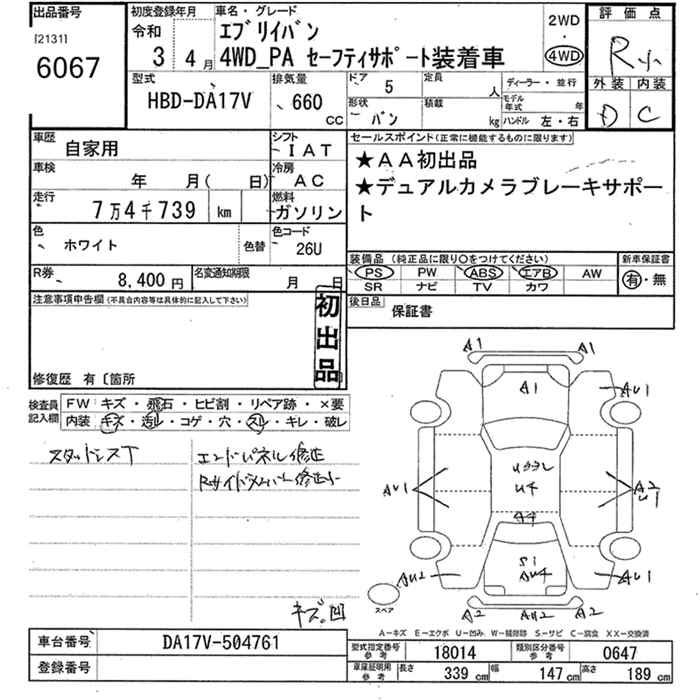 出品番号 初度登録年月 車名・グレード 2WD 評価点
[2131] 令和 エブリイバン ・
6067 3 4月 4WD_PA セーフティサポート装着車 4WD R小
型式 排気量 ドア 5 定員 人 ディーラー・並行 外装 内装
HBD-DA17V 660 CC 形状 バン 積載 kg モデル年式 年 D C
ハンドル 左・右
車歴 自家用 シフト IAT セールスポイント(正常に機能するものに限ります)
車検 年 月( 日) 冷房 AC ★AA初出品
走行 7万4千739 km 燃料 ガソリン ★デュアルカメラブレーキサポート
色 ホワイト 色替 色コード 26U
装備品(純正品に限り○をつけてください) 新車保証書
R券 8,400円 名変通知期限 月 日 PS PW ABS エアB AW 有・無
SR ナビ TV カワ
注意事項申告欄(不具合内容等は具体的に記入して下さい) 初出品 後日品 保証書
修復歴 有〔箇所
検査員記入欄 FW キズ・飛石・ヒビ割・リペア跡・×要
内装 キズ・汚レ・コゲ・穴・スレ・キレ・破レ
スタッドレスT エンドパネル修正
キズ。凹
A1 A1
A1 AU1
AU1 A2
U1
S1
AU2 AU1
スペア
A2 AU2 A2
A-キズ E-エクボ U-凹み W-補修跡 S-サビ C-腐食 XX-交換済
車台番号 DA17V-504761 型式指定番号 参考 18014 類別区分番号 参考 0647
登録番号 車庫証明用 参考 長さ 339 cm 幅 147 cm 高さ 189 cm